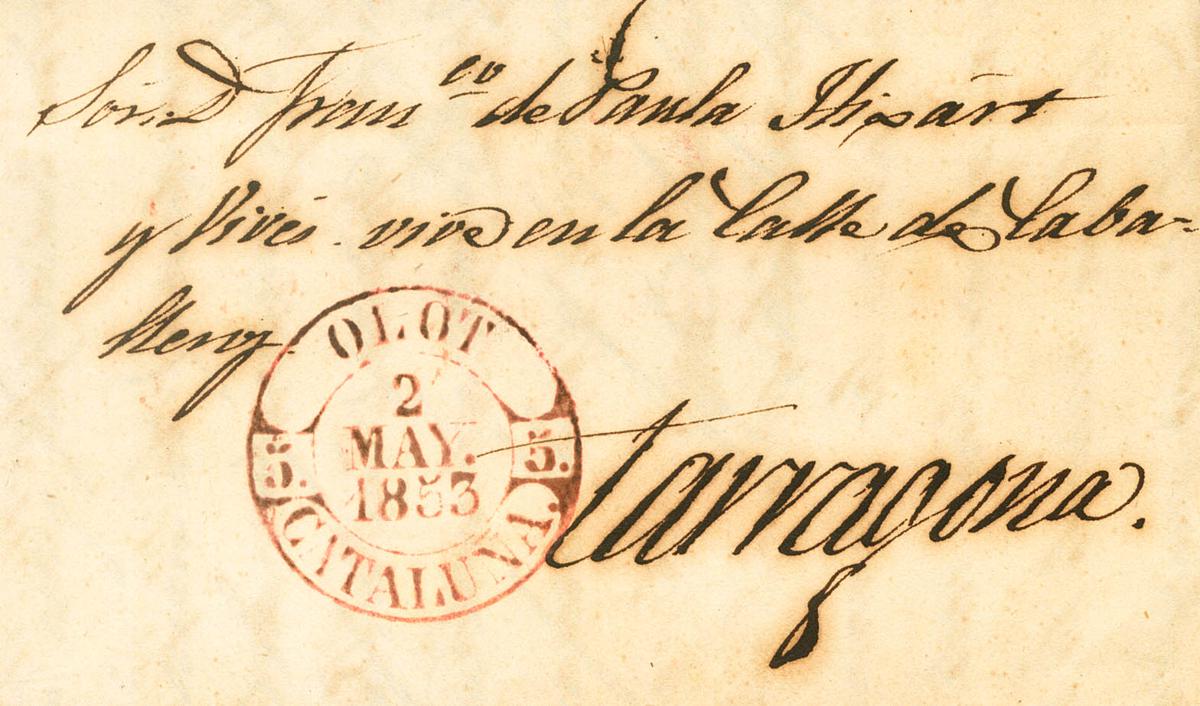 Sōr. D. Franco de Paula Ilixárt
y Vivés. vive en la Calle de Caba-
lleros
OLOT
2
MAY.
1853
5. 5.
CATALUÑA.
Tarragona.